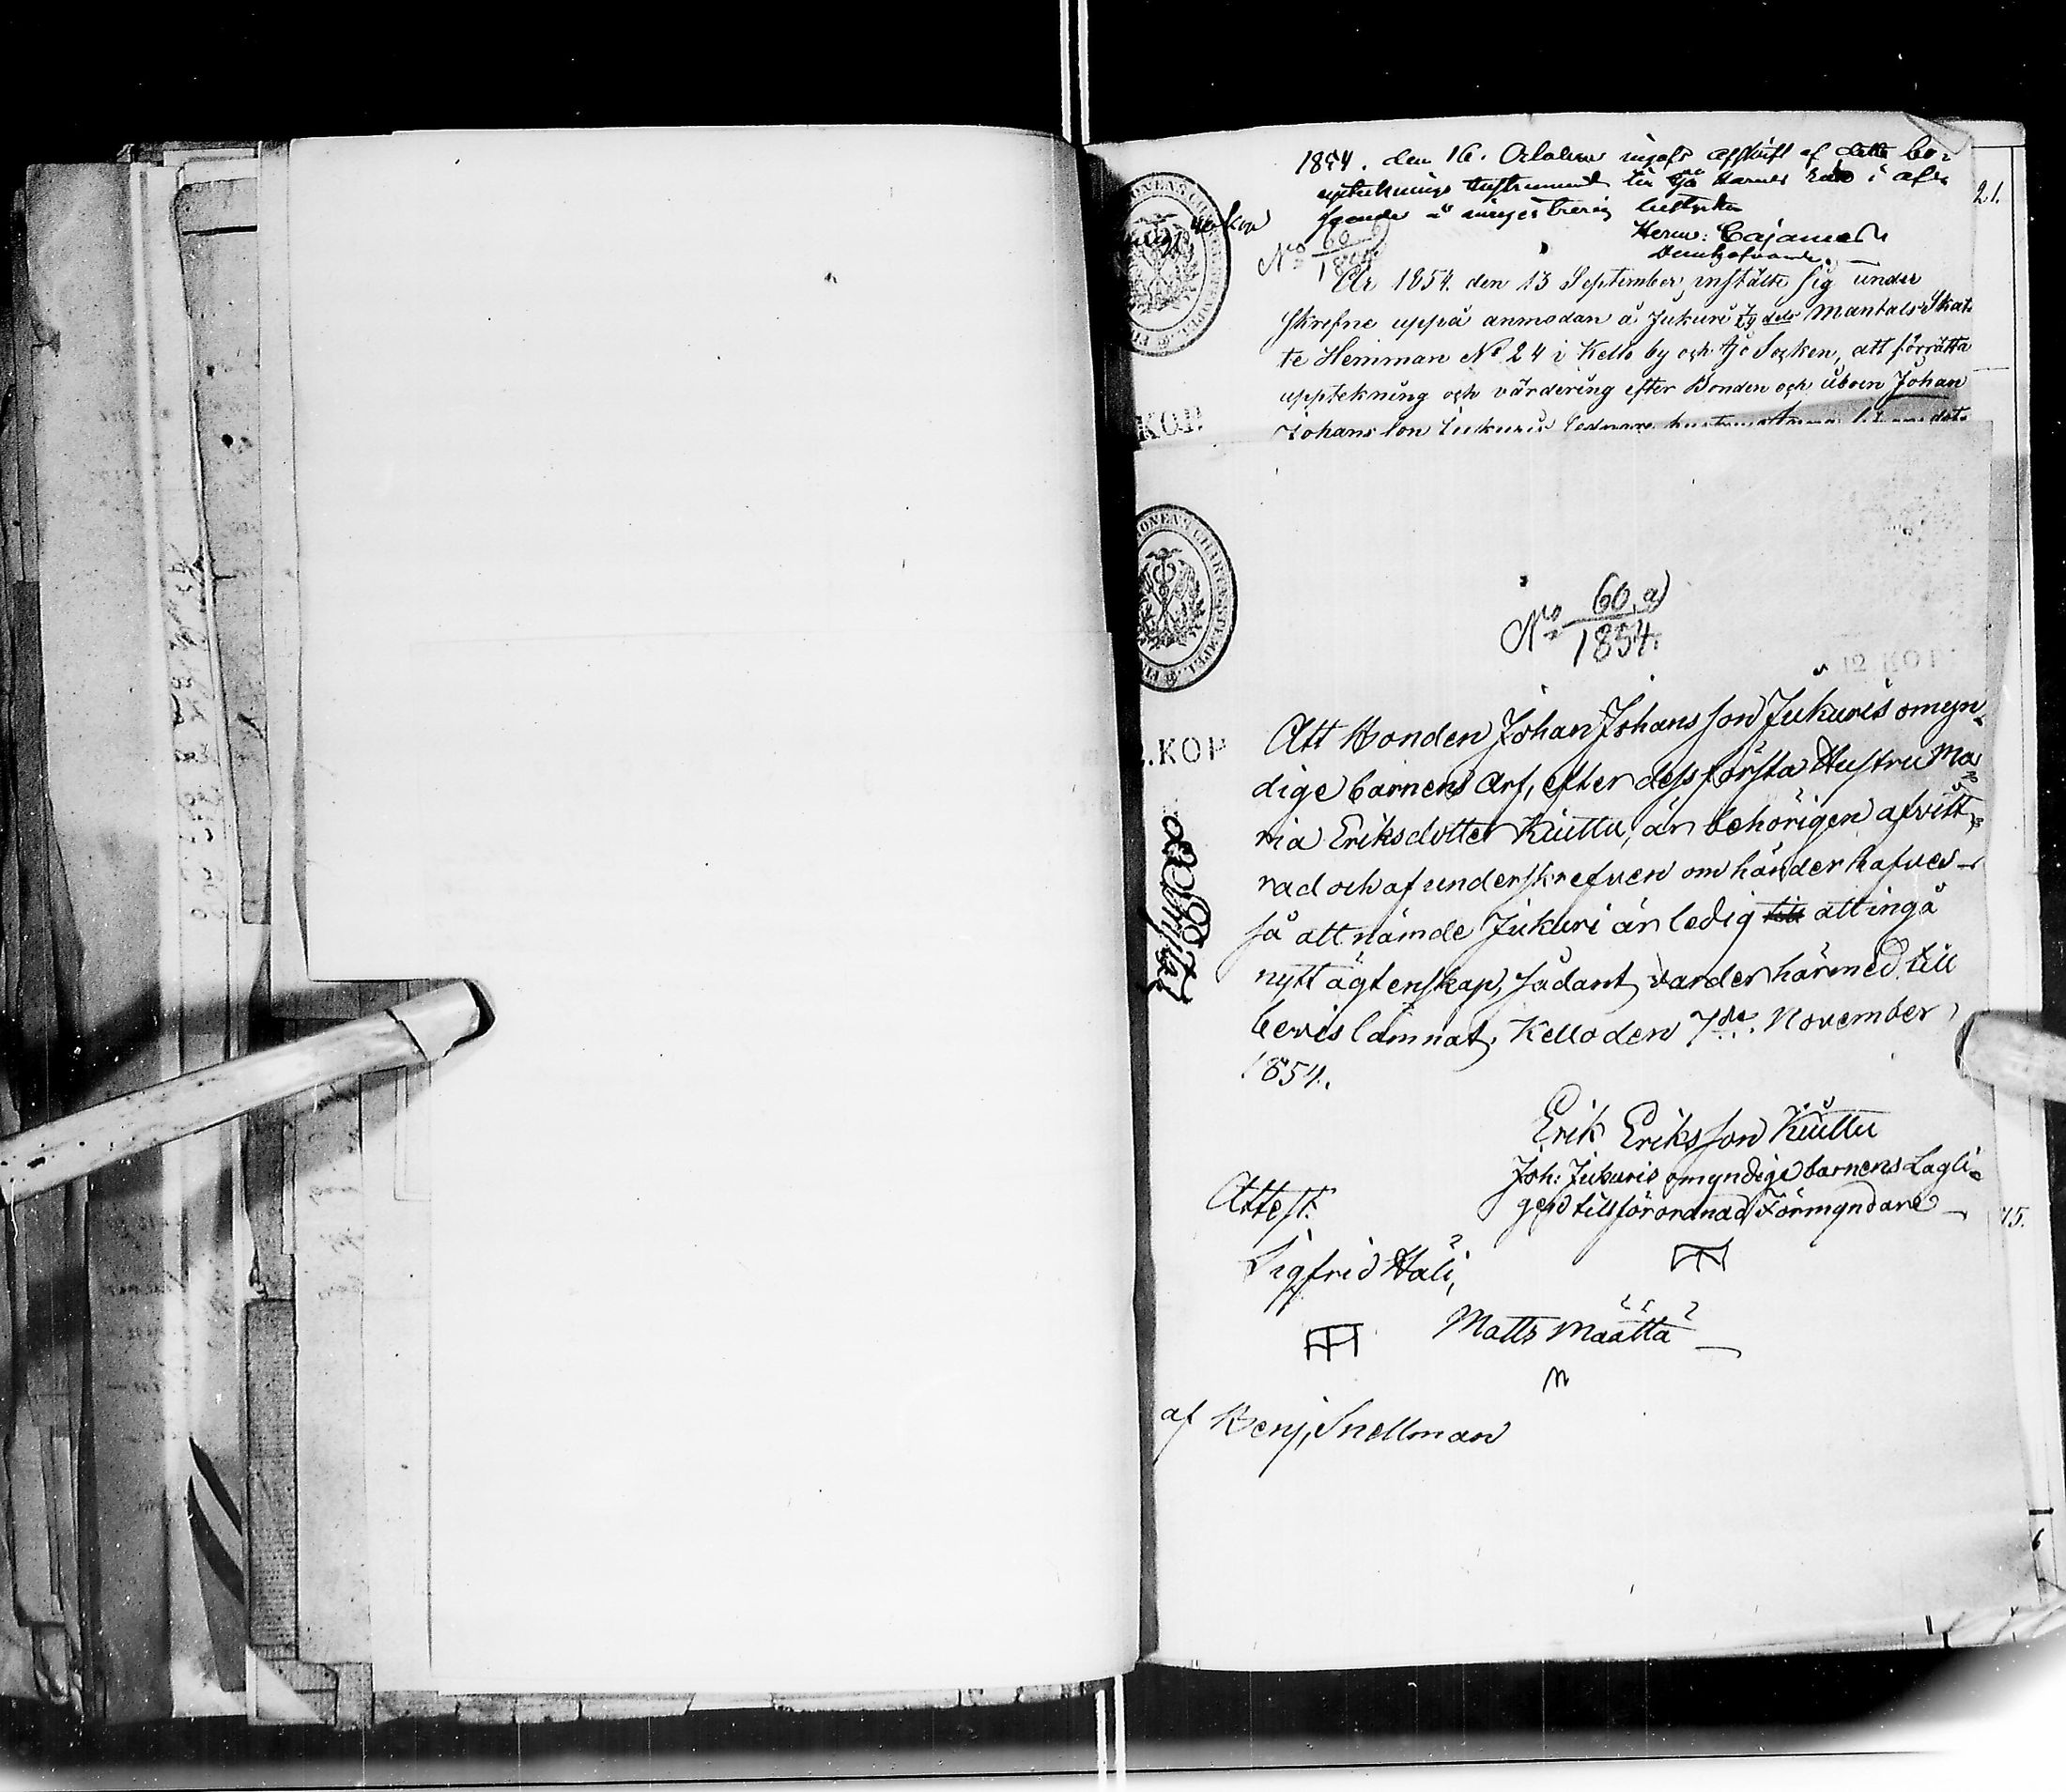 1854. den 16. October ingafs afskrift af detta bo-
upteknings instrument till Ijo Harads Rätt i afse
ende å inregistrering betygar
Herm: Cajanus
Domhafvande.
No 60
1854
År 1854 den 13 September, instälte sig under
skrefne uppå anmodan å Jukuri dels Mantals Skat
te Hemman No 24 i Kello by och Ijo Socken, att förrätta
uppteknıng och värdering efter Bonden och åboen Johan
Johansson Jukuris
21.
KOP.
No 60, a)
1854.
12 KOP
.KOP
Att Bonden Johan Johansson Jukuris omyn-
dige barnens arf, efter dess första Hustru Ma
ria Eriksdotter Kiuttu, är behörigen afvitt-
rad och af underskrefven om händer hafves
så att nämde Jukuri är ledig att ingå
nytt ägtenskap, sådant varder härmed till
bevis lämnat. Kello den 7de November
1854.
Erik Eriksson Kiuttu
Joh: Jukuris omyndige barnens Lagli-
gen tillförordnad Förmyndare
Attest.
Sigfrid Hali,
Matts Määttä
af Benj, Snellman
15.
6